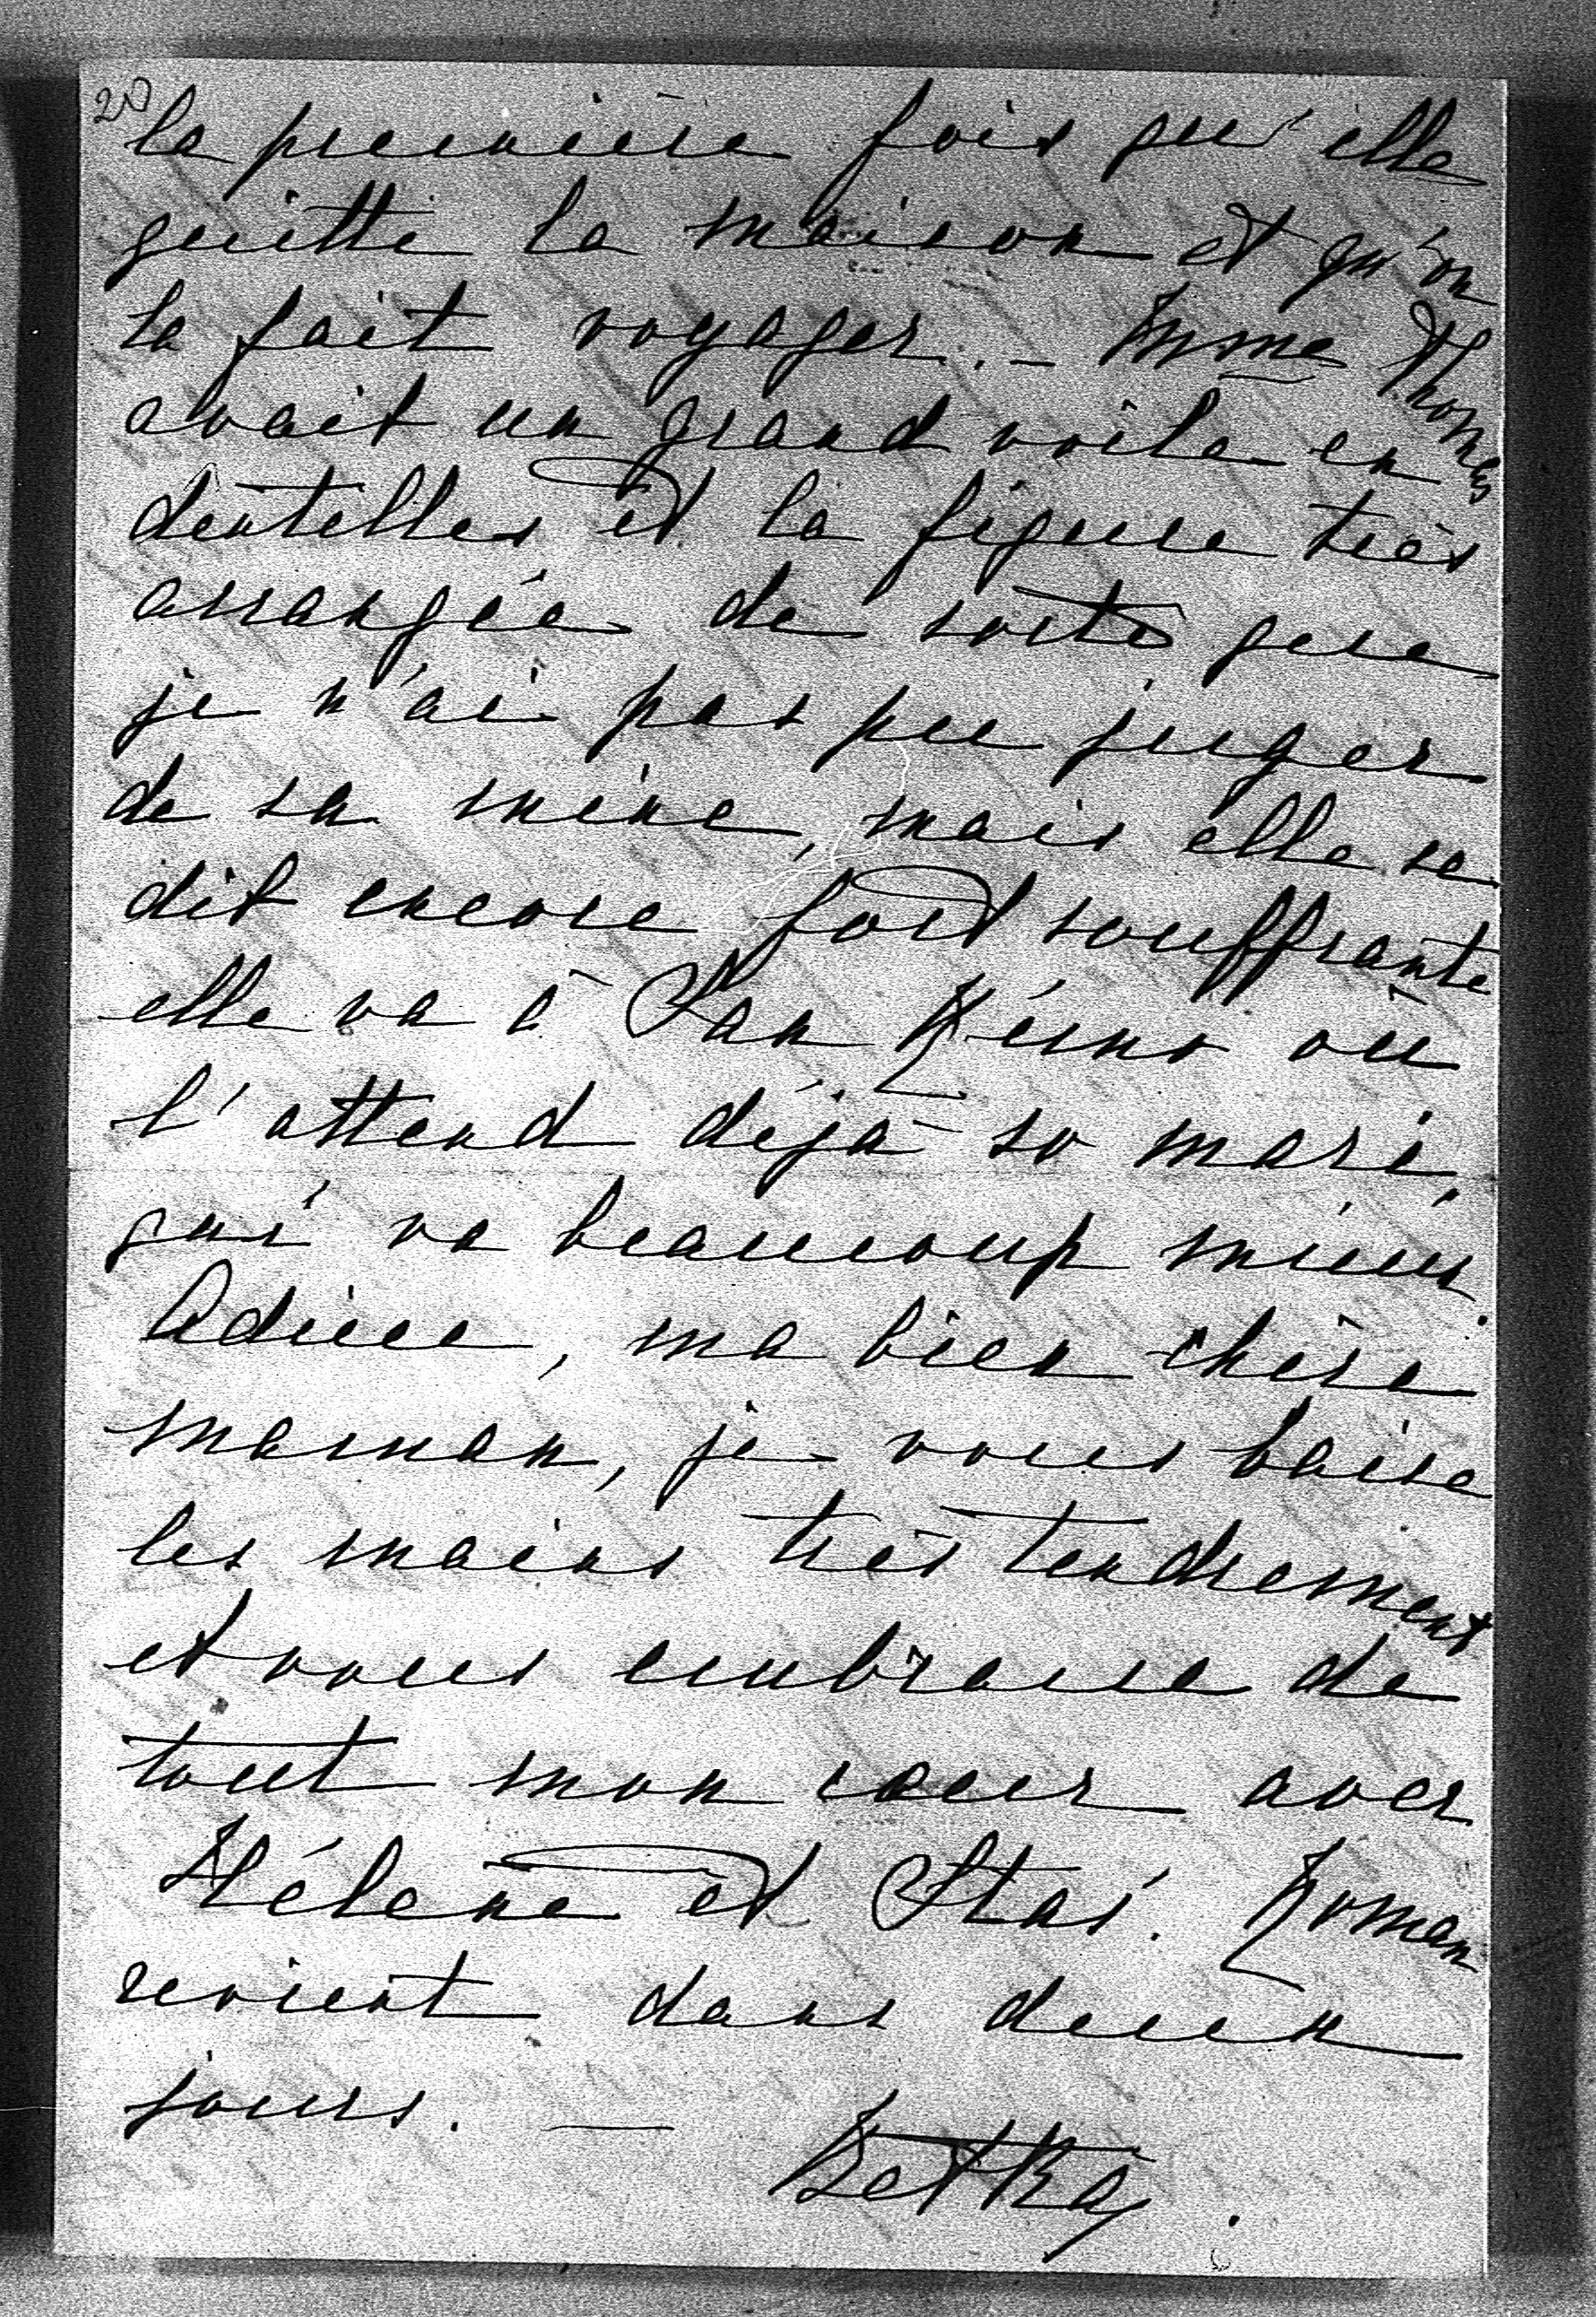 20
la première fois qu'elle
quitte la maison et qu'on
la fait voyager. – Mme Thomas
avait un grand voile en
dentelles et la figure très
arrangée de sorte que
je n'ai pas pu juger
de sa mine, mais elle se
dit encore fort souffrante
elle va à San Rémo où
l'attend déjà so mari,
qui va beaucoup mieux.
Adieu, ma bien chère
maman, je vous baise
les mains très tendrement
et vous embrasse de
tout mon cœur avec
Hélène et Stas. Roman
revient dans deux
jours. —
Betka.